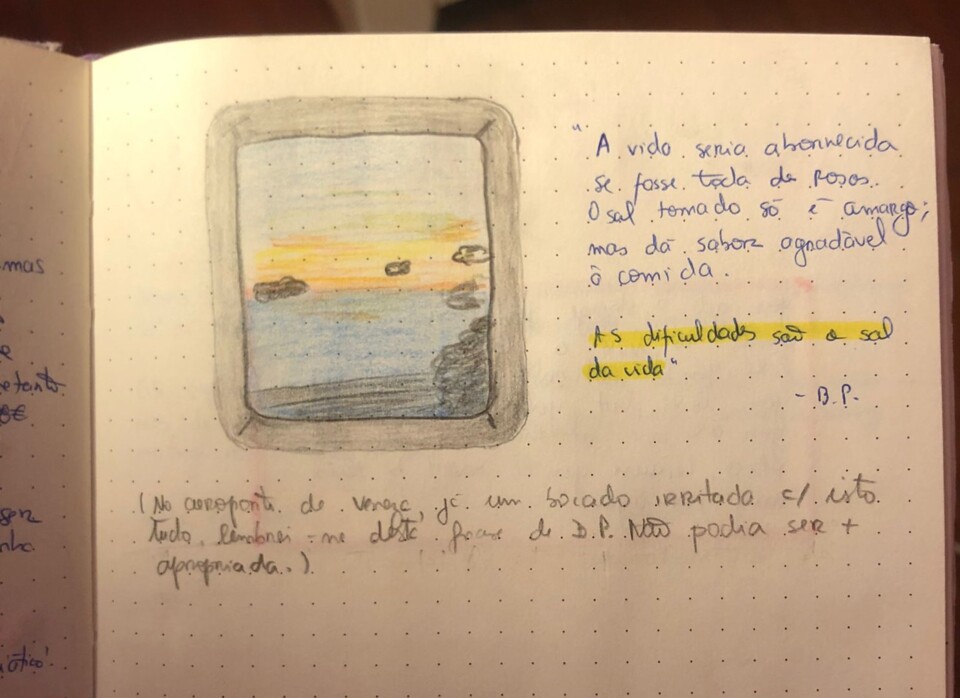 "A vida seria aborrecida
se fosse toda de rosas.
O sal tomado só é amargo;
mas dá sabor agradável
à comida.
As dificuldades são o sal
da vida"
- B.P.
(No aeroporto de veneza, já um bocado irritada c/ isto
tudo, lembrei-me desta frase de B.P. Não podia ser +
apropriada.)
mas
e
etanto
0€
ser
nha
ótico!